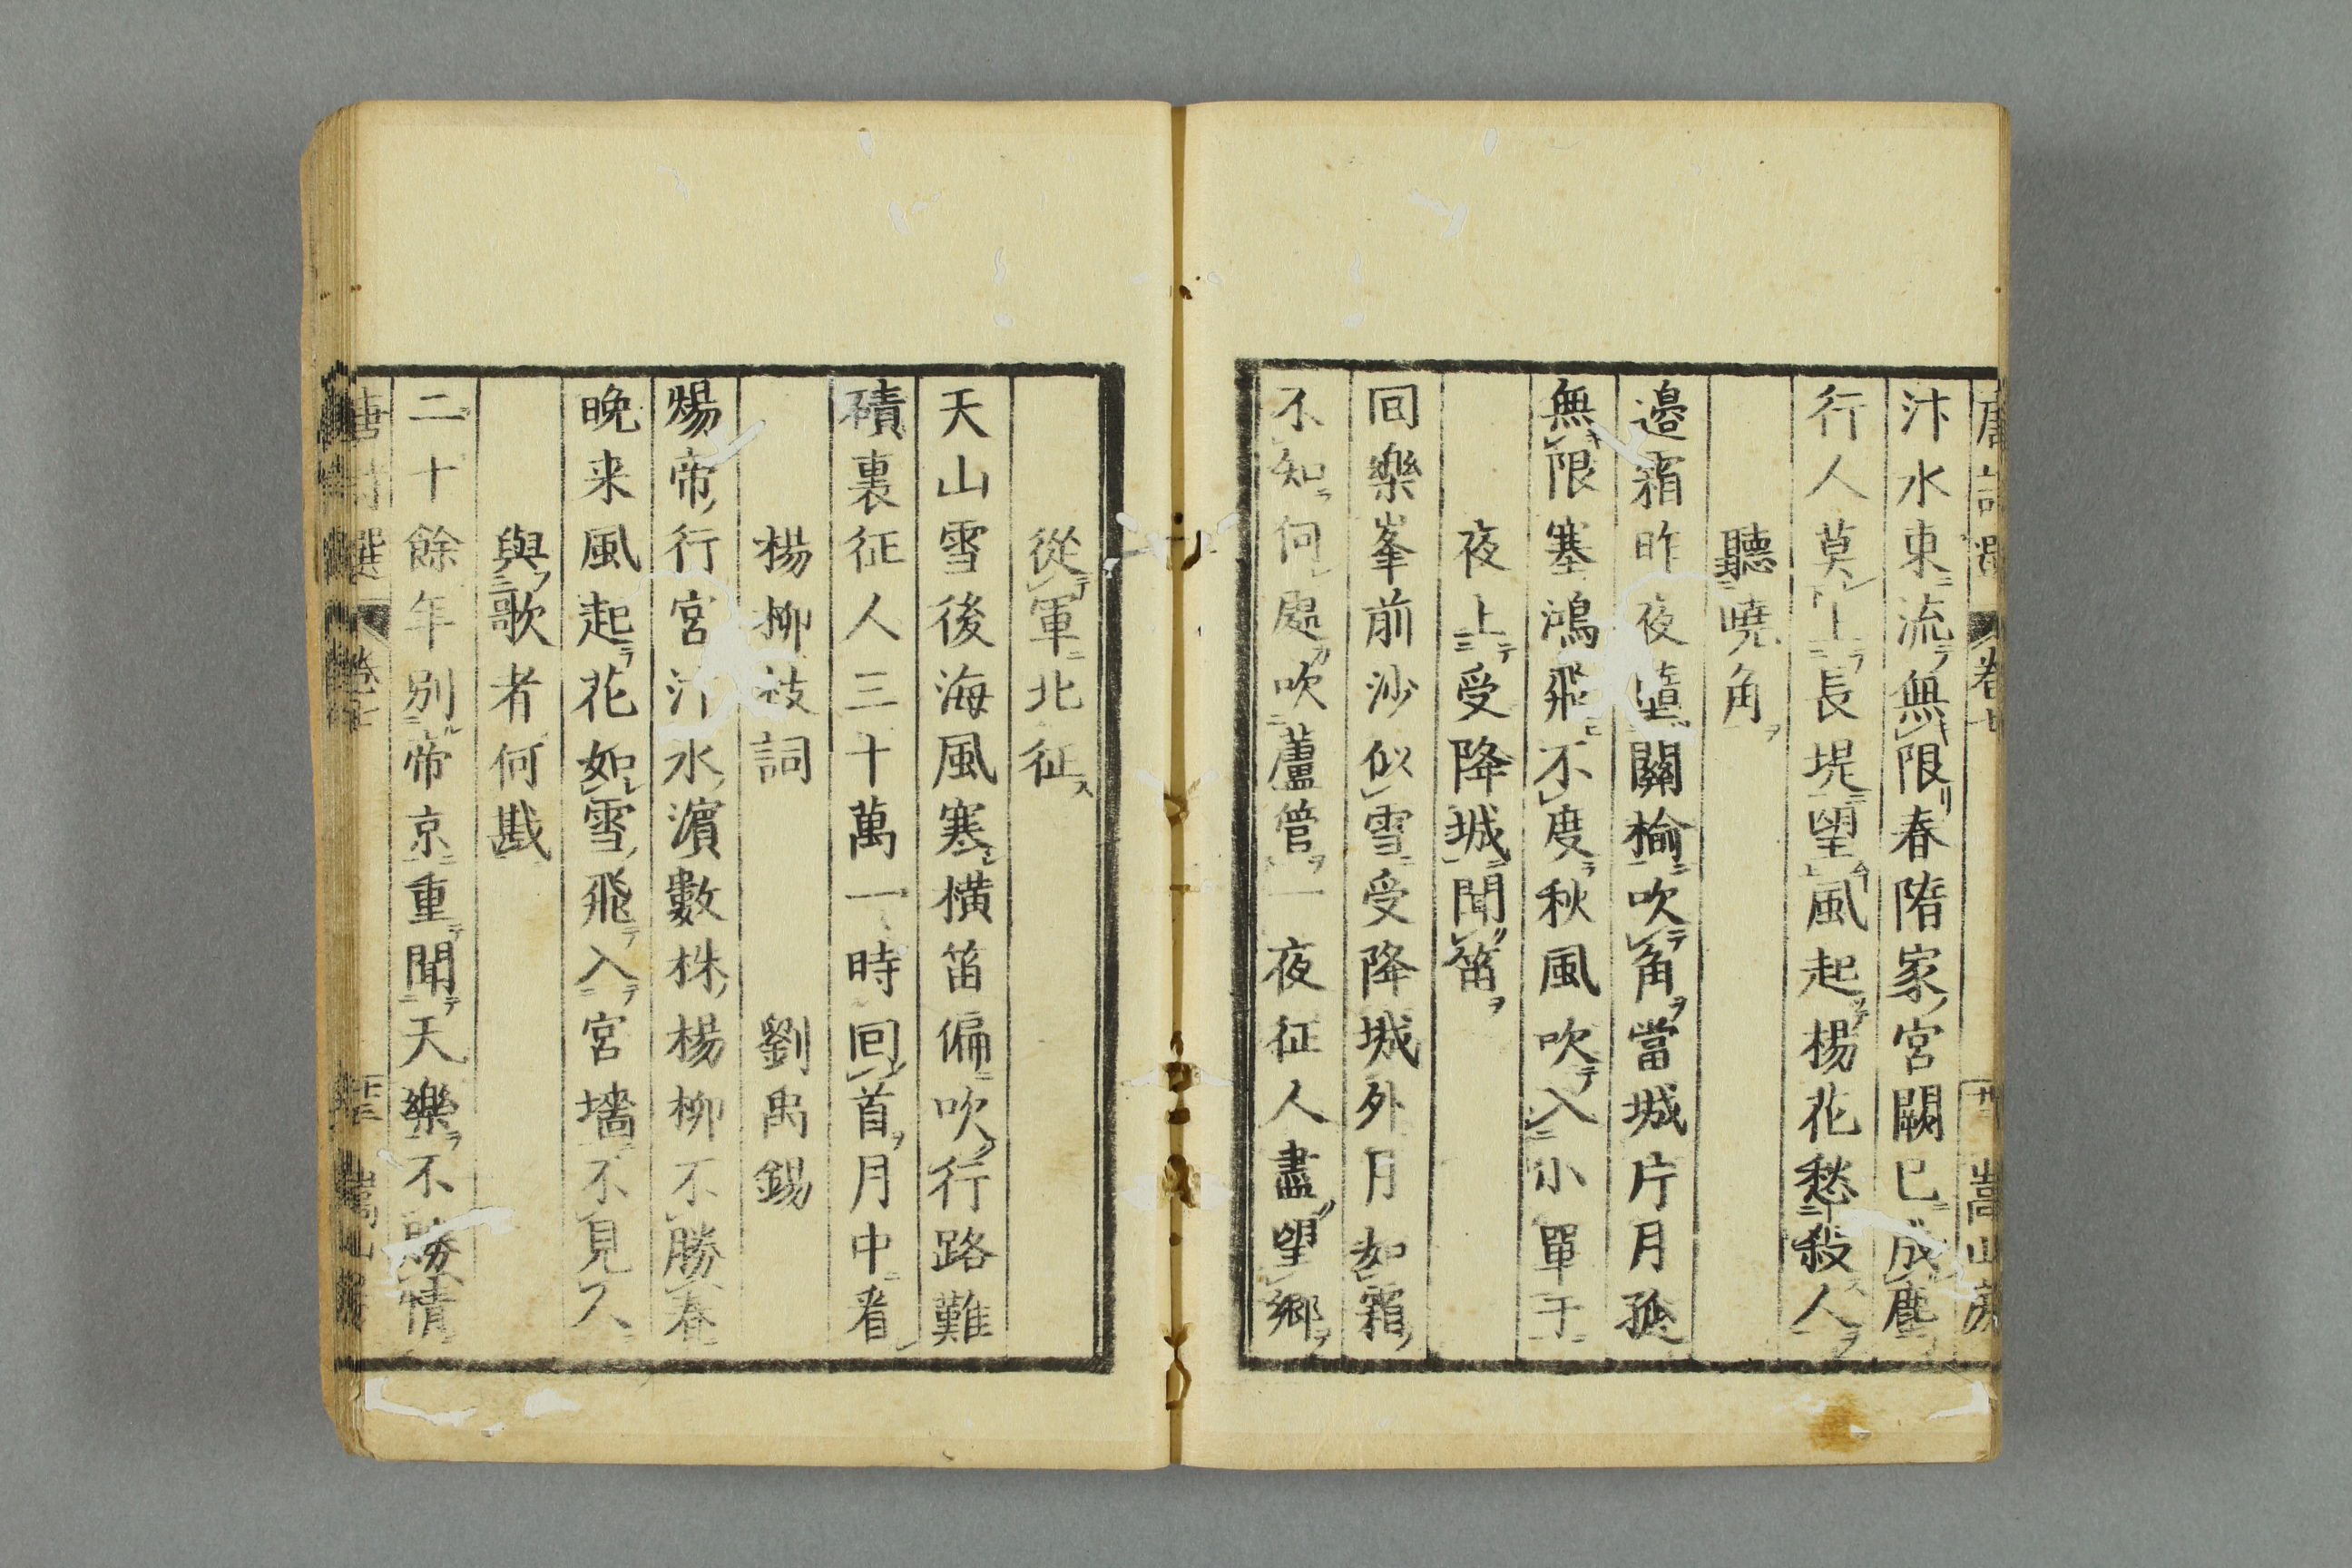 唐詩選 卷七 嵩山房
汴水東流無限春隋家宮闕已成塵
行人莫上長堤望風起楊花愁殺人
聽曉角
邉霜昨夜墮關榆吹角當城片月孤
無限塞鴻飛不度秋風吹入小單于
夜上受降城聞笛
回樂峯前沙似雪受降城外月如霜
不知何處吹蘆管一夜征人盡望鄉
從軍北征
天山雪後海風寒橫笛偏吹行路難
磧裏征人三十萬一時回首月中看
楊柳枝詞 劉禹錫
煬帝行宮汴水濵數株楊柳不勝春
晚来風起花如雪飛入宮墻不見人
與歌者何戡
二十餘年別帝京重聞天樂不勝情
唐詩選 卷七 嵩山房